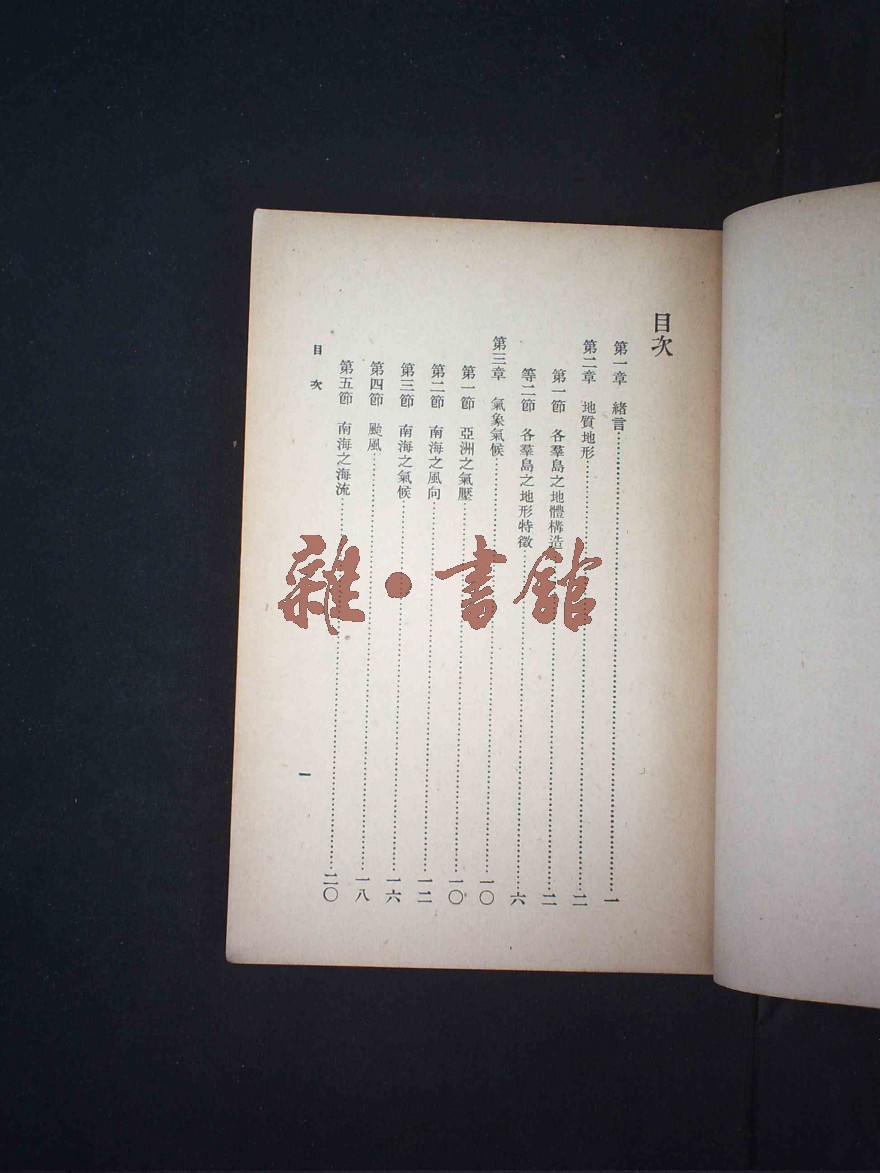 目次
第一章　緒言…………一
第二章　地質地形…………二
第一節　各羣島之地體構造…………二
等二節　各羣島之地形特徵…………六
第三章　氣象氣候…………一〇
第一節　亞洲之氣壓…………一〇
第二節　南海之風向…………一二
第三節　南海之氣候…………一六
第四節　颱風…………一八
第五節　南海之海流…………二〇
目次
一
雜·書館